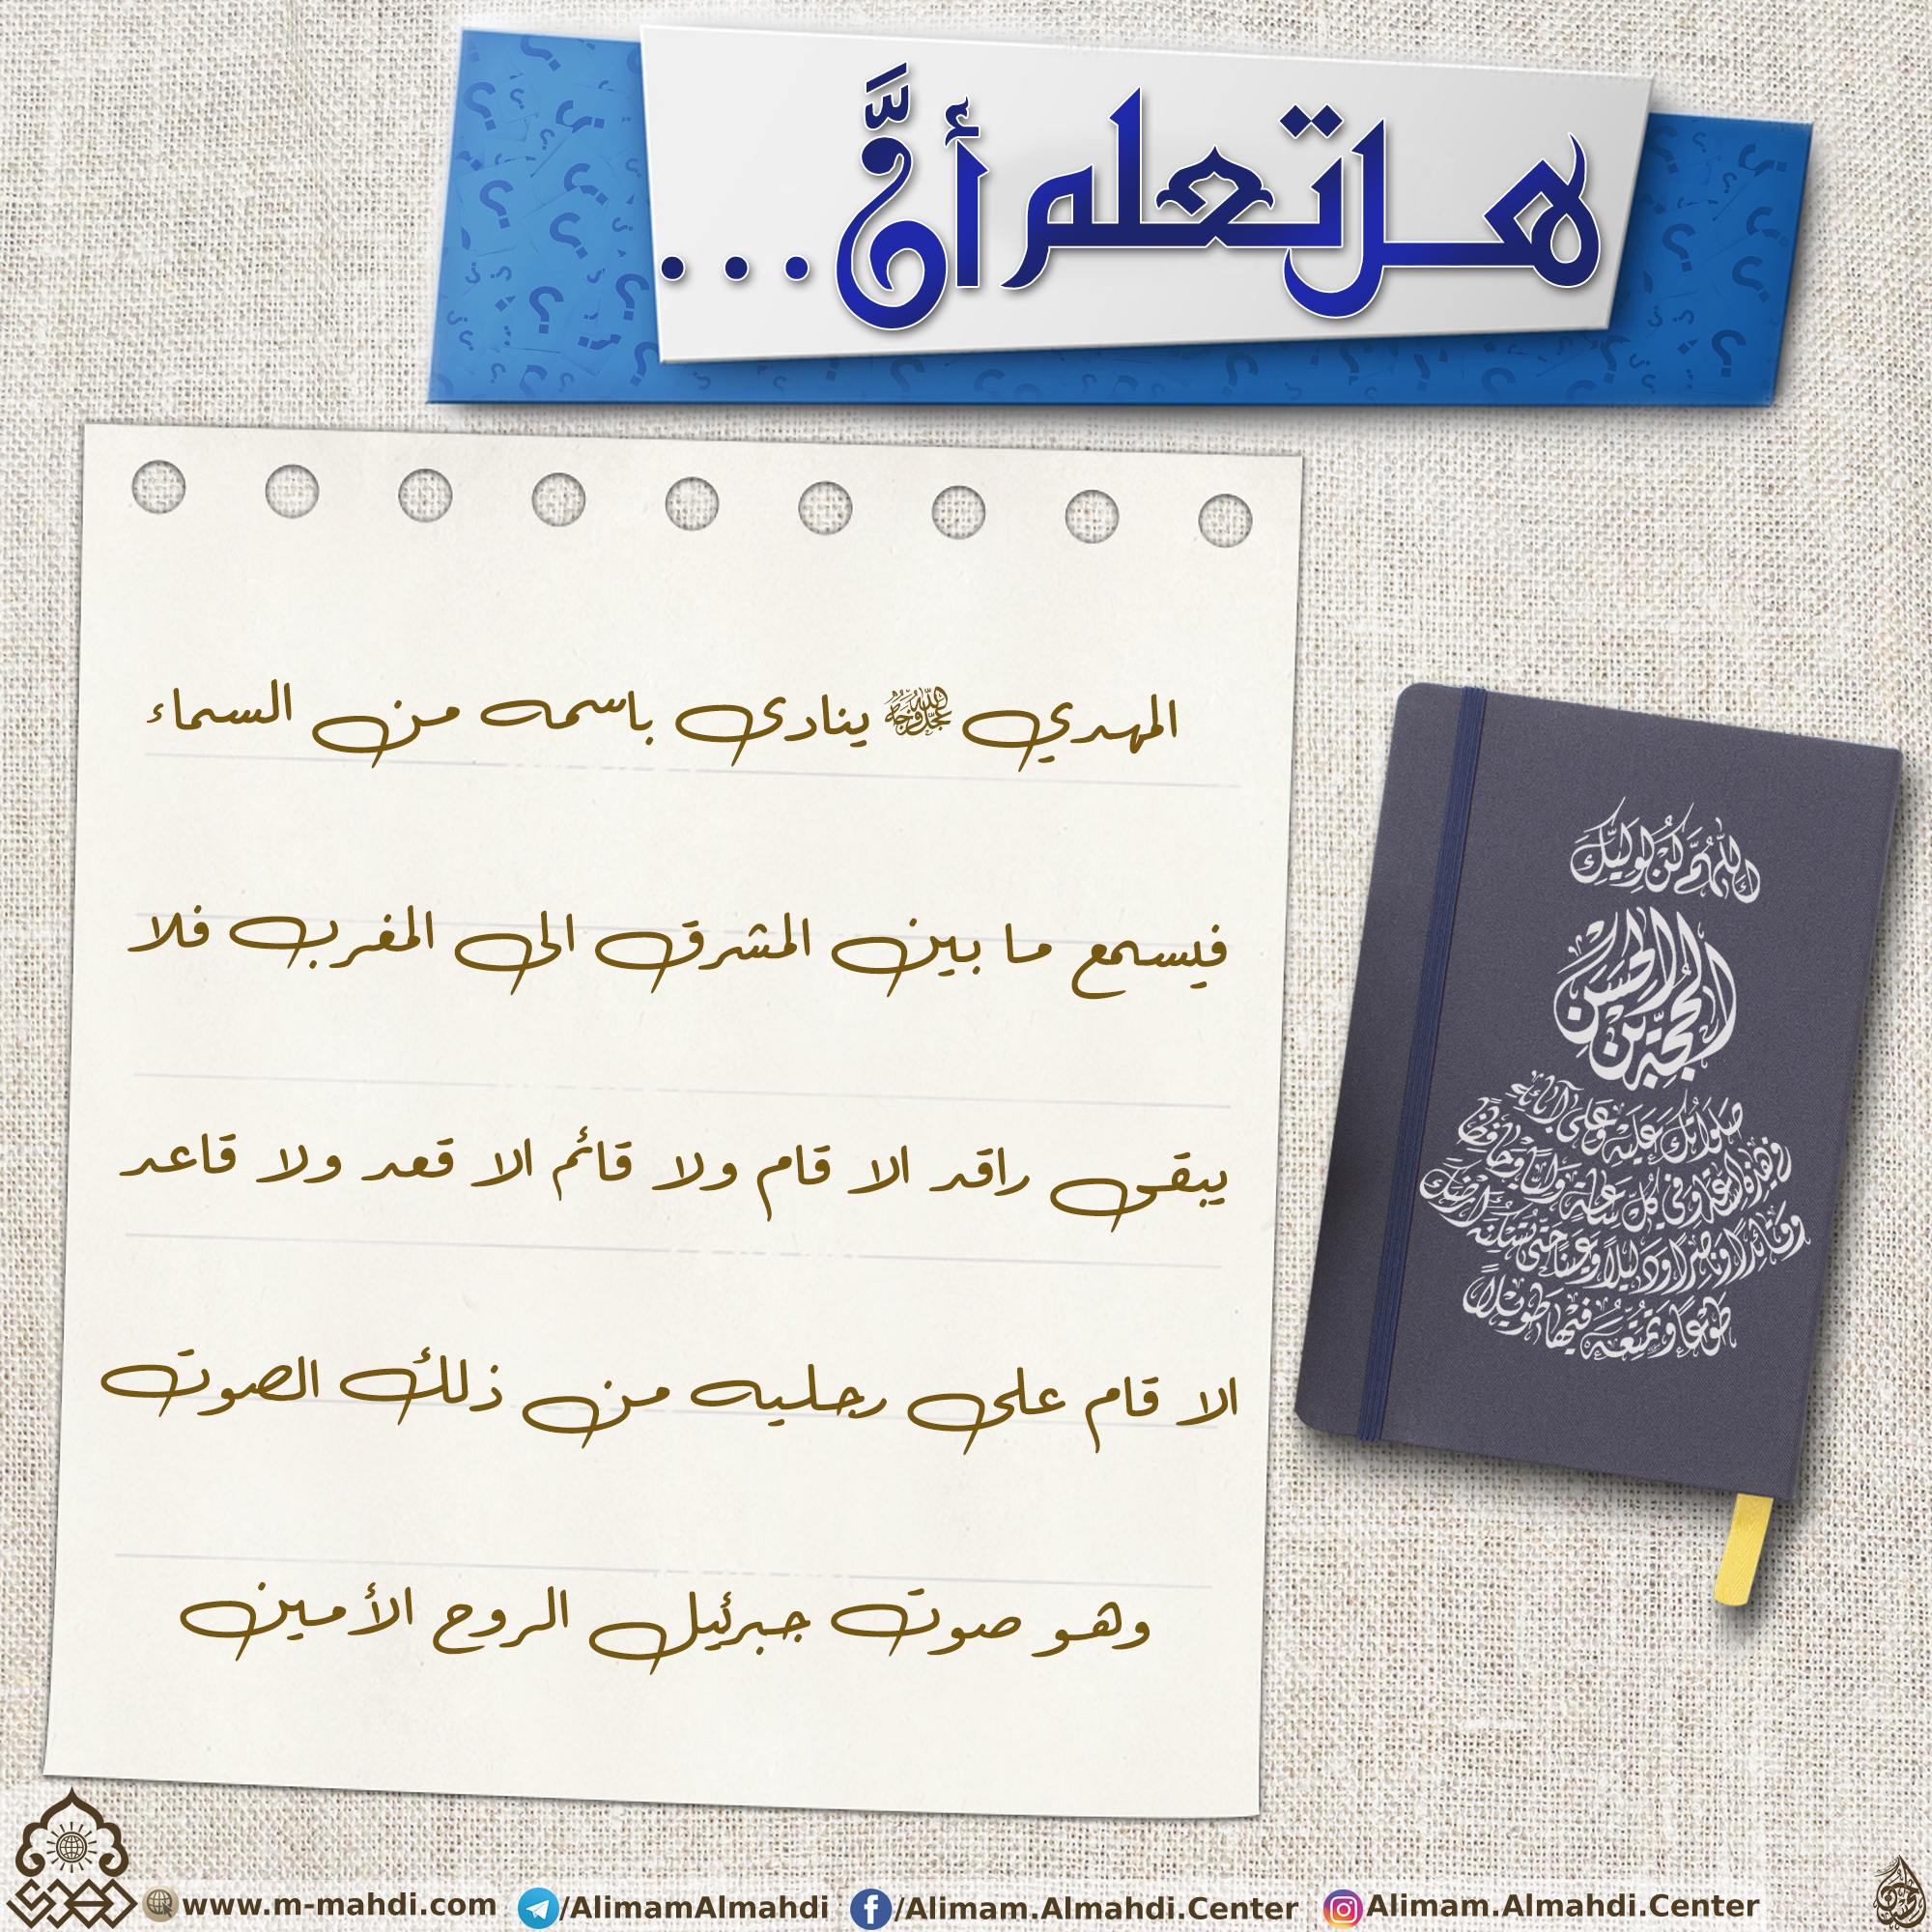 هل تعلم أنَّ...
المهدي عجل الله فرجه ينادى باسمه من السماء
فيسمع ما بين المشرق الى المغرب فلا
يبقى راقد الا قام ولا قائم الا قعد ولا قاعد
الا قام على رجليه من ذلك الصوت
وهو صوت جبرئيل الروح الأمين
اللّٰهُمَّ كُنْ لِوَلِيِّكَ
الحُجَّةِ بْنِ الحَسَنِ
صَلَواتُكَ عَلَيْهِ وَعَلى آبائِهِ
في هذِهِ السّاعَةِ وَفي كُلِّ ساعَةٍ وَلِيّاً وَحافِظاً
وَقائِداً وَناصِراً وَدَليلاً وَعَيْناً حَتّى تُسْكِنَهُ أَرْضَكَ
طَوْعاً وَتُمَتِّعَهُ فيها طَويلاً
www.m-mahdi.com /AlimamAlmahdi /Alimam.Almahdi.Center Alimam.Almahdi.Center